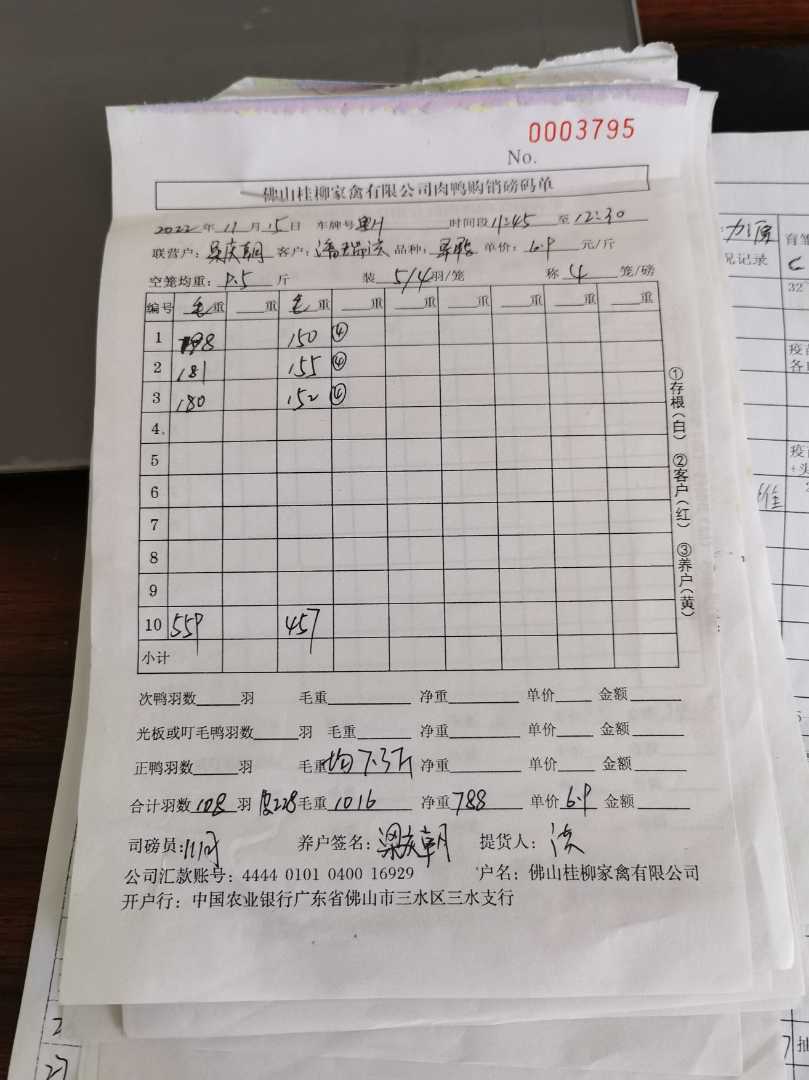 0003795
No.
佛山桂柳家禽有限公司肉鸭购销磅码单
2022年11月15日 车牌号 时间段11:45至12:30
联营户: 梁庆朝 客户: 品种: 单价: 6.9 元/斤
空笼均重: 9.5 斤 装 5/4羽/笼 称 4 笼/磅
编号 毛重 重 毛重 重 重 重 重 重 重
1 198 150 ④
2 181 155 ④
3 180 152 ④
4
5
6
7
8
9
10 559 457
小计
①存根(白) ②客户(红) ③养户(黄)
次鸭羽数 羽 毛重 净重 单价 金额
光板或叮毛鸭羽数 羽 毛重 净重 单价 金额
正鸭羽数 羽 毛重 均7.3斤 净重 单价 金额
合计羽数 108 羽 皮228 毛重 1016 净重 788 单价 6.9 金额
司磅员: 养户签名: 梁庆朝 提货人:
公司汇款账号: 4444 0101 0400 16929 户名: 佛山桂柳家禽有限公司
开户行: 中国农业银行广东省佛山市三水区三水支行
况记录
32
疫苗
27